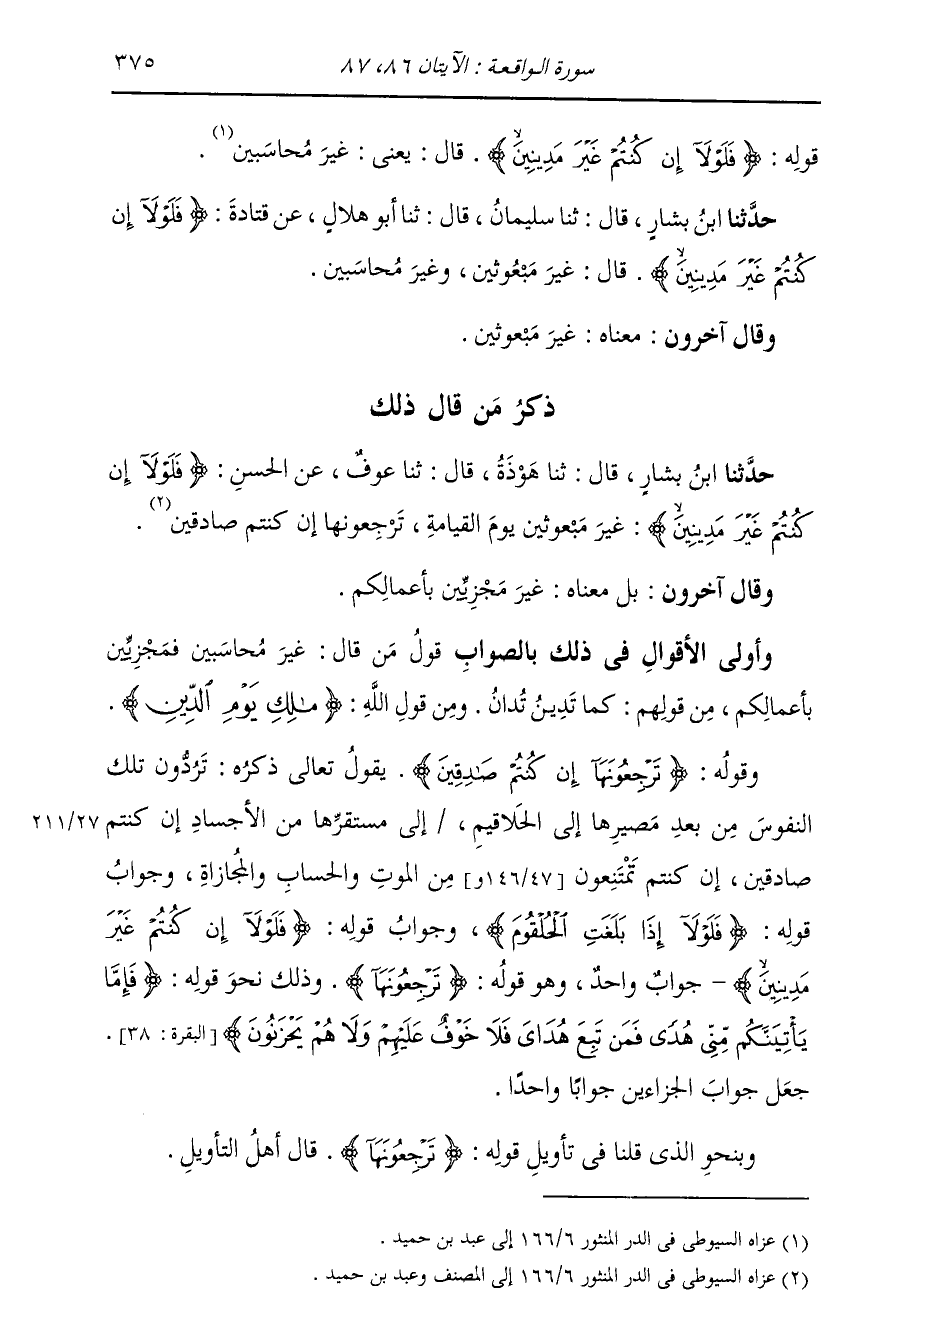 سورة الواقعة : الآيتان ٨٦، ٨٧
٣٧٥
قولِه : ﴿ فَلَوْلَآ إِن كُنتُمْ غَيْرَ مَدِينِينَ ﴾ . قال : يعنى : غيرَ مُحاسَبين(١) .
حدَّثنا ابنُ بشارٍ ، قال : ثنا سليمانُ ، قال : ثنا أبو هلالٍ ، عن قتادةَ : ﴿ فَلَوْلَآ إِن
كُنتُمْ غَيْرَ مَدِينِينَ ﴾ . قال : غيرَ مَبْعُوثين ، وغيرَ مُحاسَبين .
وقال آخرون : معناه : غيرَ مَبْعوثين .
ذكرُ مَن قال ذلك
حدَّثنا ابنُ بشارٍ ، قال : ثنا هَوْذَةُ ، قال : ثنا عوفٌ ، عن الحسنِ : ﴿ فَلَوْلَآ إِن
كُنتُمْ غَيْرَ مَدِينِينَ ﴾ : غيرَ مَبْعوثين يومَ القيامةِ ، تَرْجِعونها إن كنتم صادقين(٢) .
وقال آخرون : بل معناه : غيرَ مَجْزِيِّين بأعمالِكم .
وأولى الأقوالِ فى ذلك بالصوابِ قولُ مَن قال : غيرَ مُحاسَبين فمَجْزِيِّين
بأعمالِكم ، مِن قولِهم : كما تَدِينُ تُدانُ . ومِن قولِ اللَّهِ : ﴿ مَٰلِكِ يَوْمِ ٱلدِّينِ ﴾ .
وقولُه : ﴿ تَرْجِعُونَهَآ إِن كُنتُمْ صَٰدِقِينَ ﴾ . يقولُ تعالى ذكرُه : تَرُدُّون تلك
النفوسَ مِن بعدِ مَصيرِها إلى الحَلاقيمِ ، / إلى مستقرِّها من الأجسادِ إن كنتم ٢١١/٢٧
صادقين ، إن كنتم تَمْتَنِعون [١٤٦/٤٧و] مِن الموتِ والحسابِ والمُجازاةِ ، وجوابُ
قولِه : ﴿ فَلَوْلَآ إِذَا بَلَغَتِ ٱلْحُلْقُومَ ﴾ ، وجوابُ قولِه : ﴿ فَلَوْلَآ إِن كُنتُمْ غَيْرَ
مَدِينِينَ ﴾ – جوابٌ واحدٌ ، وهو قولُه : ﴿ تَرْجِعُونَهَآ ﴾ . وذلك نحوَ قولِه : ﴿ فَإِمَّا
يَأْتِيَنَّكُم مِّنِّى هُدًى فَمَن تَبِعَ هُدَاىَ فَلَا خَوْفٌ عَلَيْهِمْ وَلَا هُمْ يَحْزَنُونَ ﴾ [البقرة : ٣٨] .
جعَل جوابَ الجزاءين جوابًا واحدًا .
وبنحوِ الذى قلنا فى تأويلِ قولِه : ﴿ تَرْجِعُونَهَآ ﴾ . قال أهلُ التأويلِ .
(١) عزاه السيوطى فى الدر المنثور ١٦٦/٦ إلى عبد بن حميد .
(٢) عزاه السيوطى فى الدر المنثور ١٦٦/٦ إلى المصنف وعبد بن حميد .